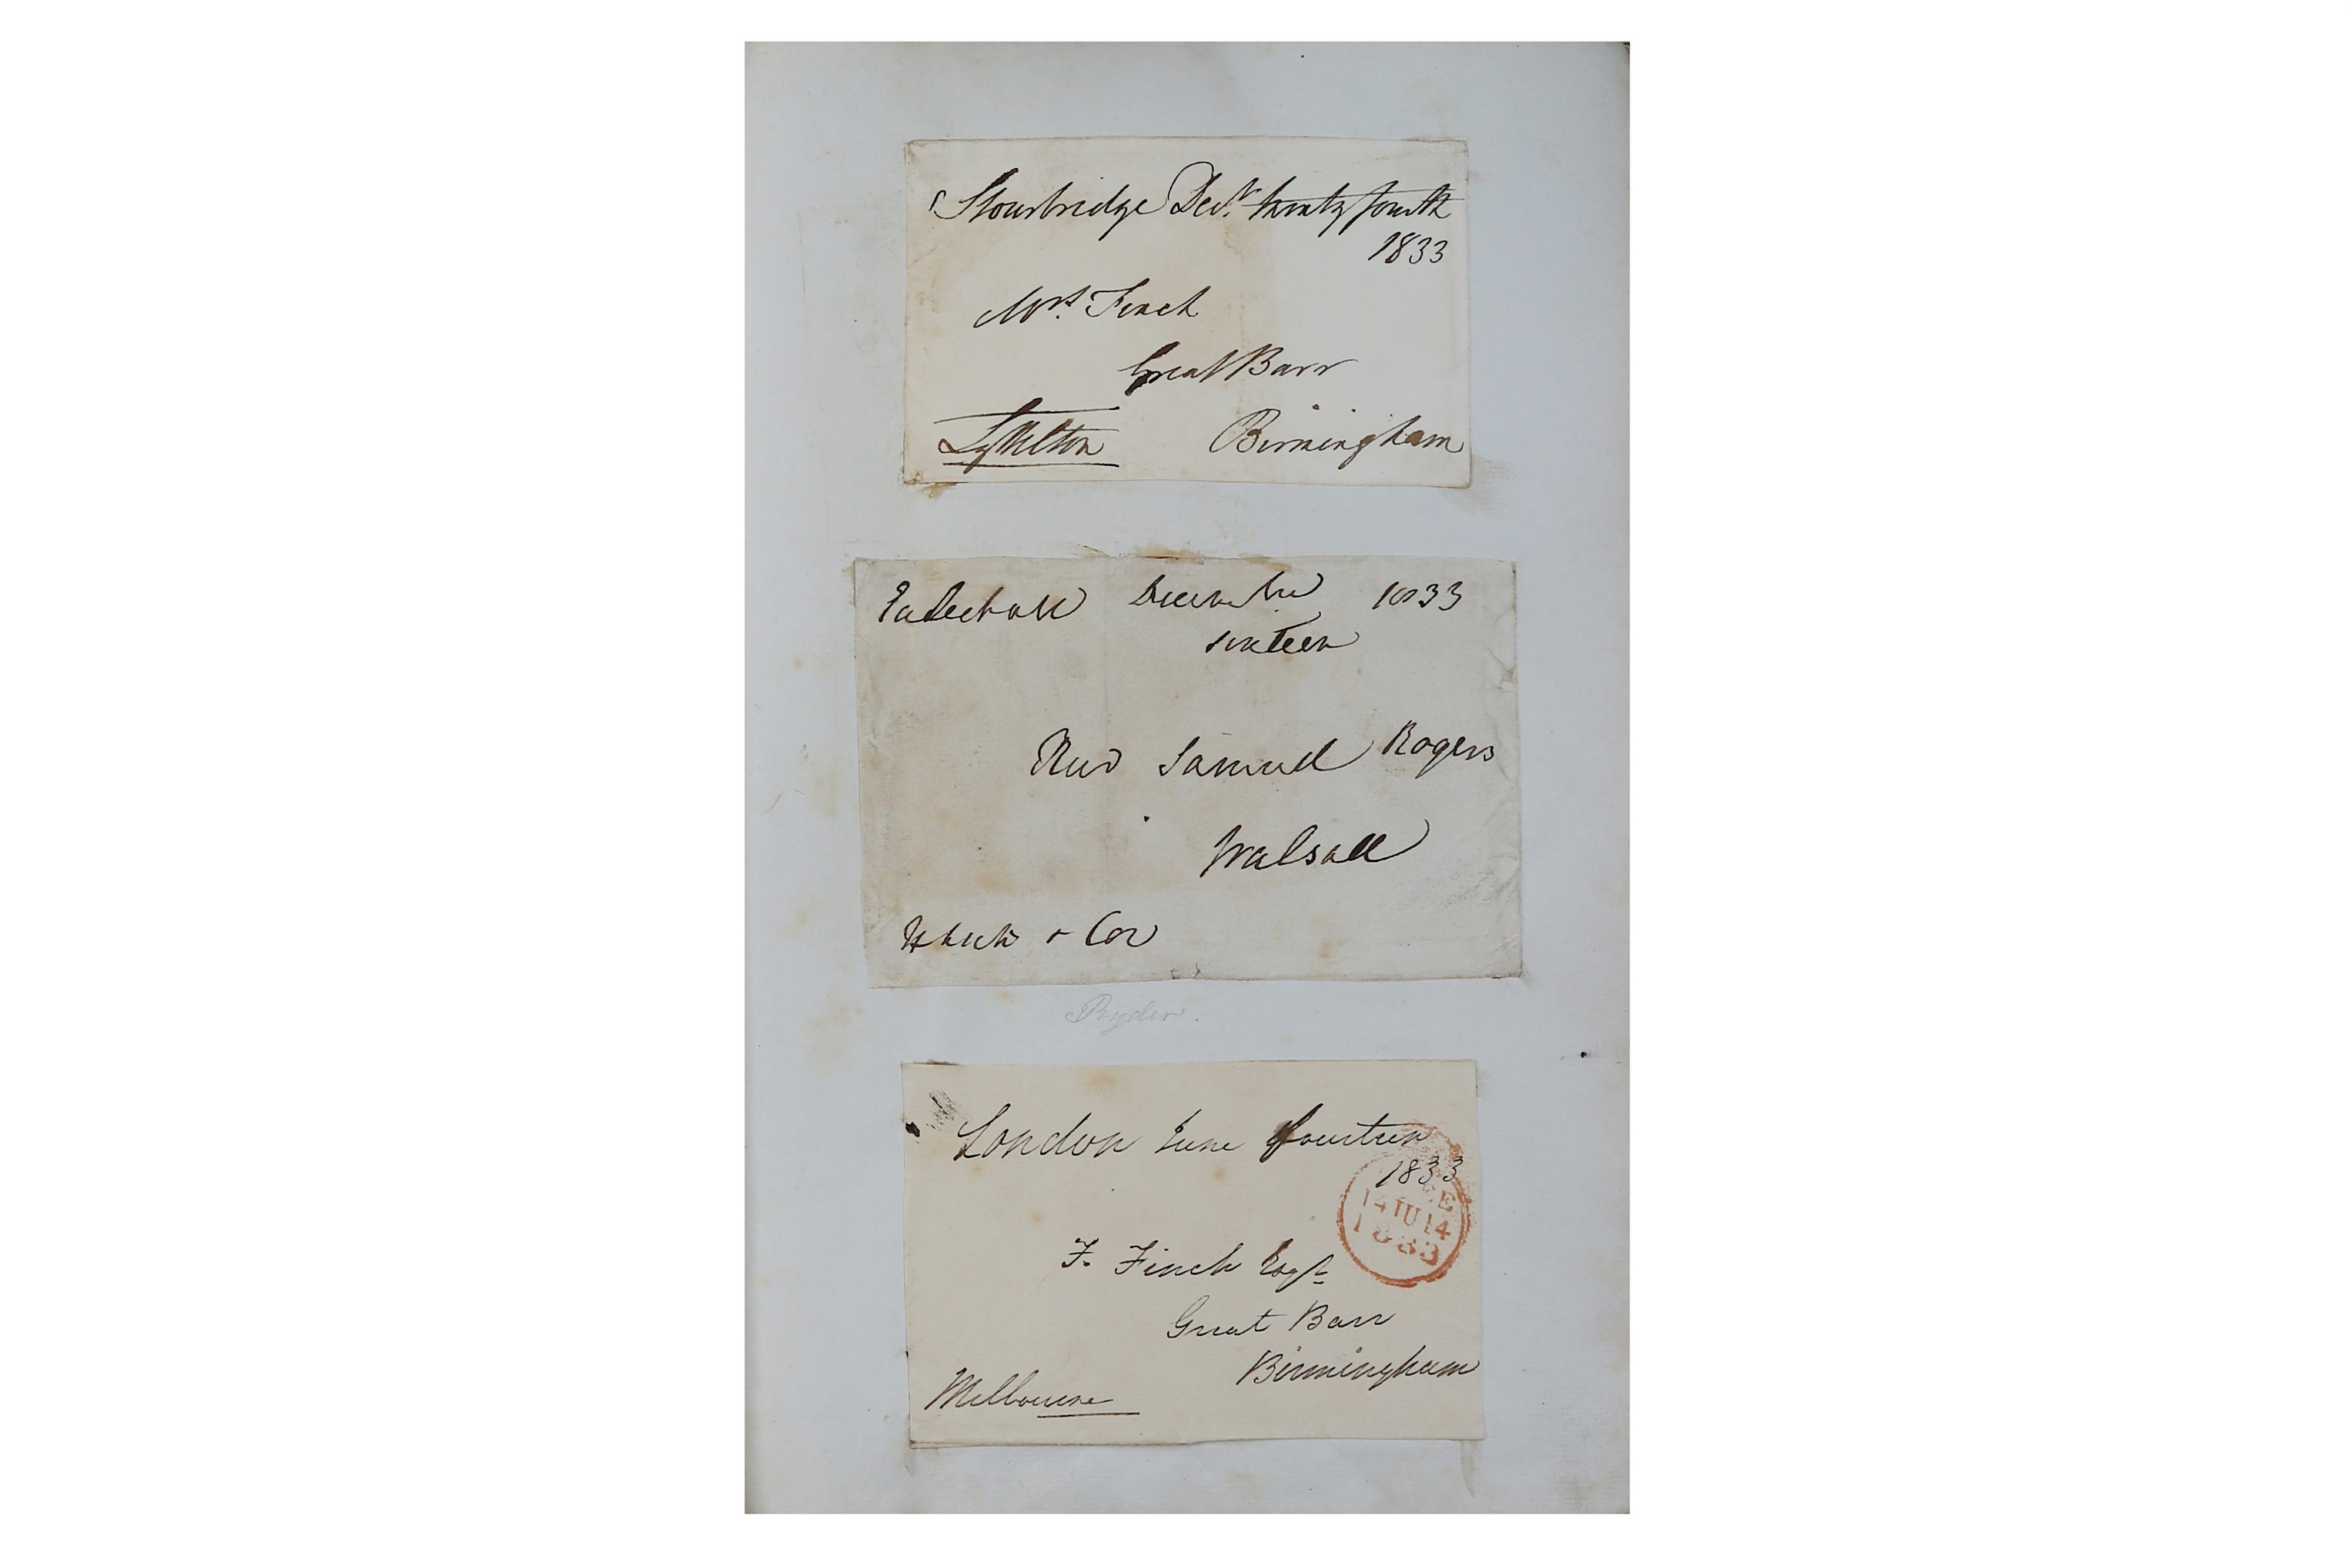 Stourbridge Decr. twenty fourth
1833
Mrs. Finch
Great Barr
Lyttelton Birmingham
Eccleshall December 1833
sixteen
Revd Samuel Rogers
Walsall
H Lich & Cov
Ryder.
London June fourteen
1833
14 JU 14
1833
F. Finch Esqr.
Great Barr
Birmingham
Melbourne